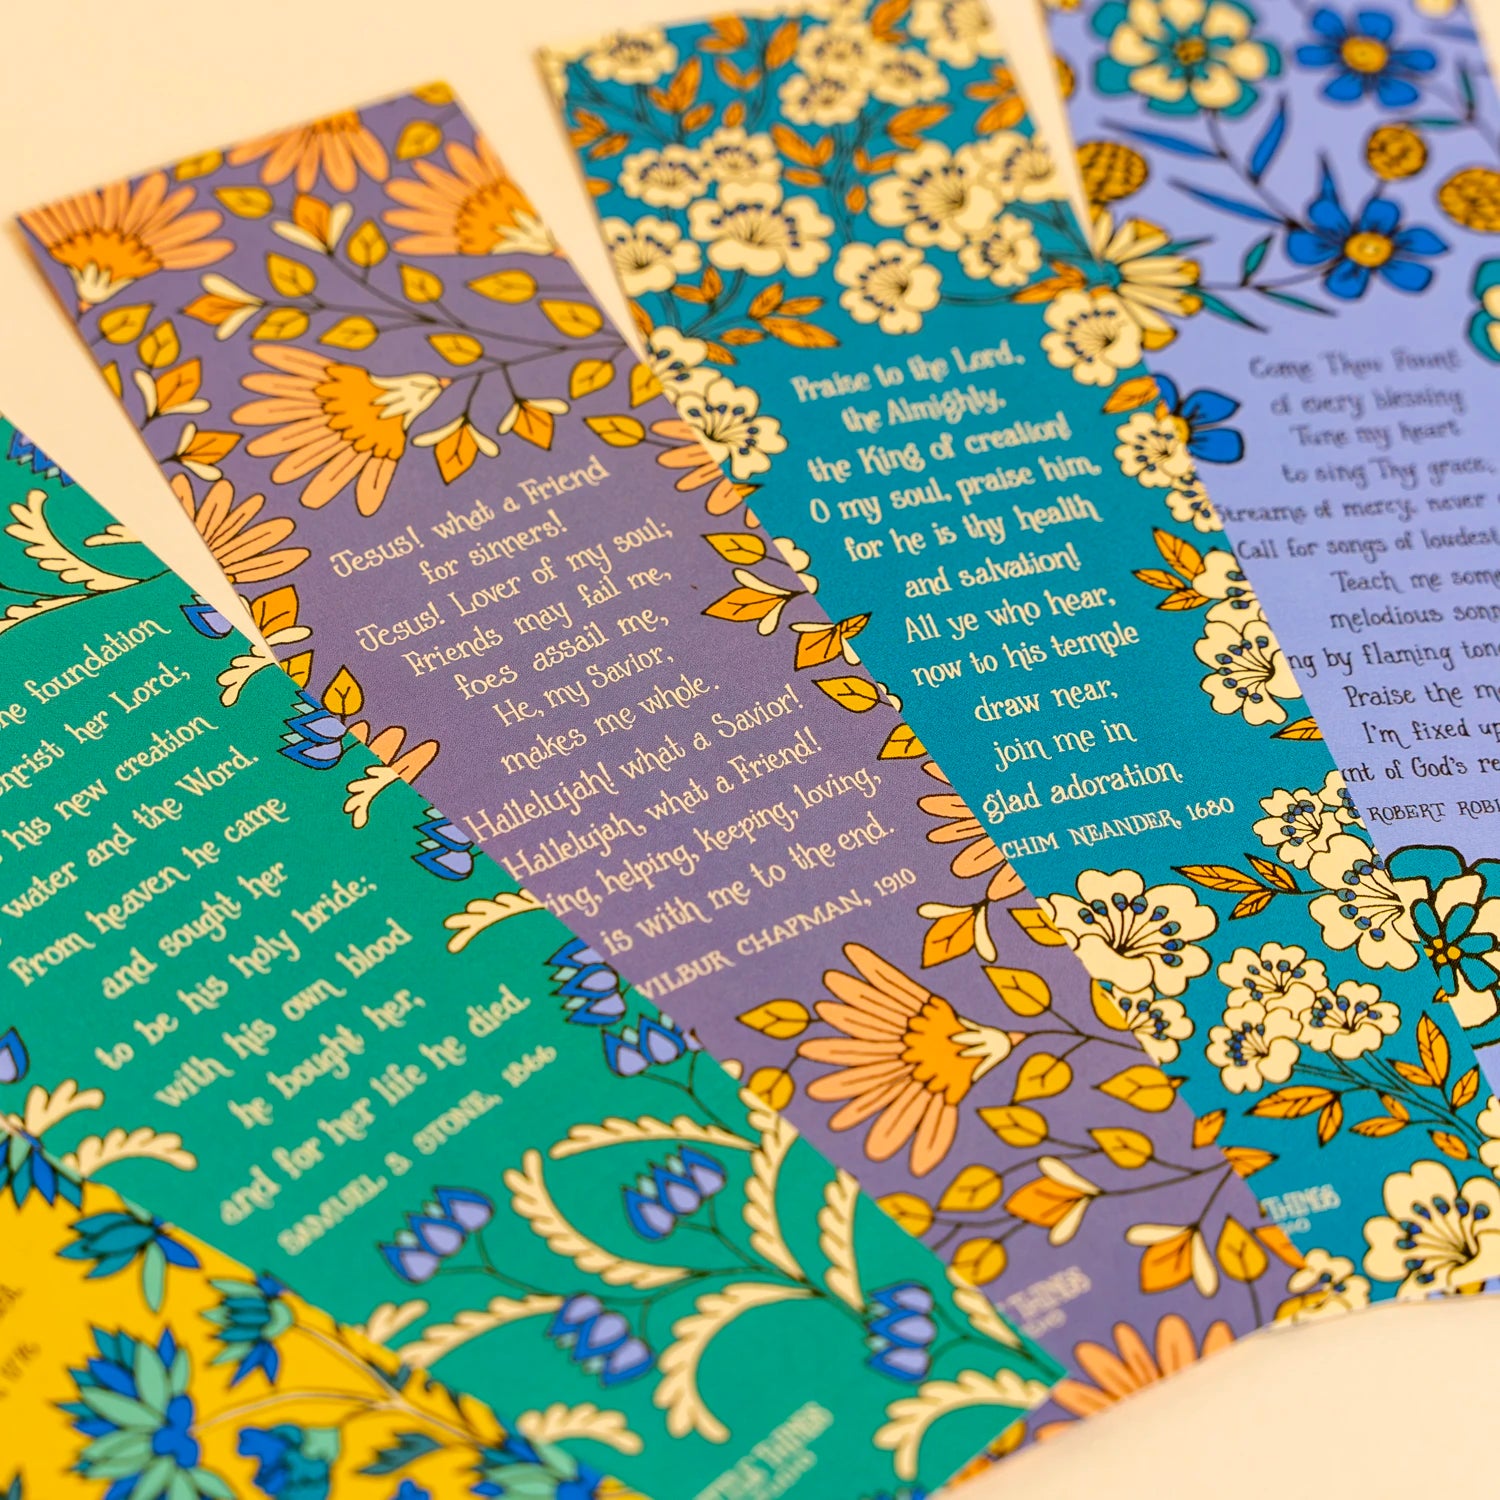 foundation
her Lord;
his new creation
water and the Word.
From heaven he came
and sought her
to be his holy bride;
with his own blood
he bought her,
and for her life he died.
SAMUEL S. STONE, 1866
Jesus! what a Friend
for sinners!
Jesus! Lover of my soul;
Friends may fail me,
foes assail me,
He, my Savior,
makes me whole.
Hallelujah! what a Savior!
Hallelujah, what a Friend!
ing, helping, keeping, loving,
is with me to the end.
WILBUR CHAPMAN, 1910
THINGS
Praise to the Lord,
the Almighty,
the King of creation!
O my soul, praise him,
for he is thy health
and salvation!
All ye who hear,
now to his temple
draw near,
join me in
glad adoration.
CHIM NEANDER, 1680
THINGS
Come Thou Fount
of every blessing
Tune my heart
to sing Thy grace,
Streams of mercy, never
Call for songs of loudest
Teach me some
melodious sonn
ng by flaming tong
Praise the m
I'm fixed up
nt of God's re
ROBERT ROBI
THINGS